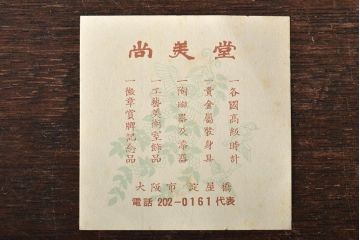 尚美堂
一各國高級時計
一貴金屬裝身具
一陶磁器及漆器
一工藝美術室飾品
一徽章賞牌記念品
大阪市淀屋橋
電話202-0161代表